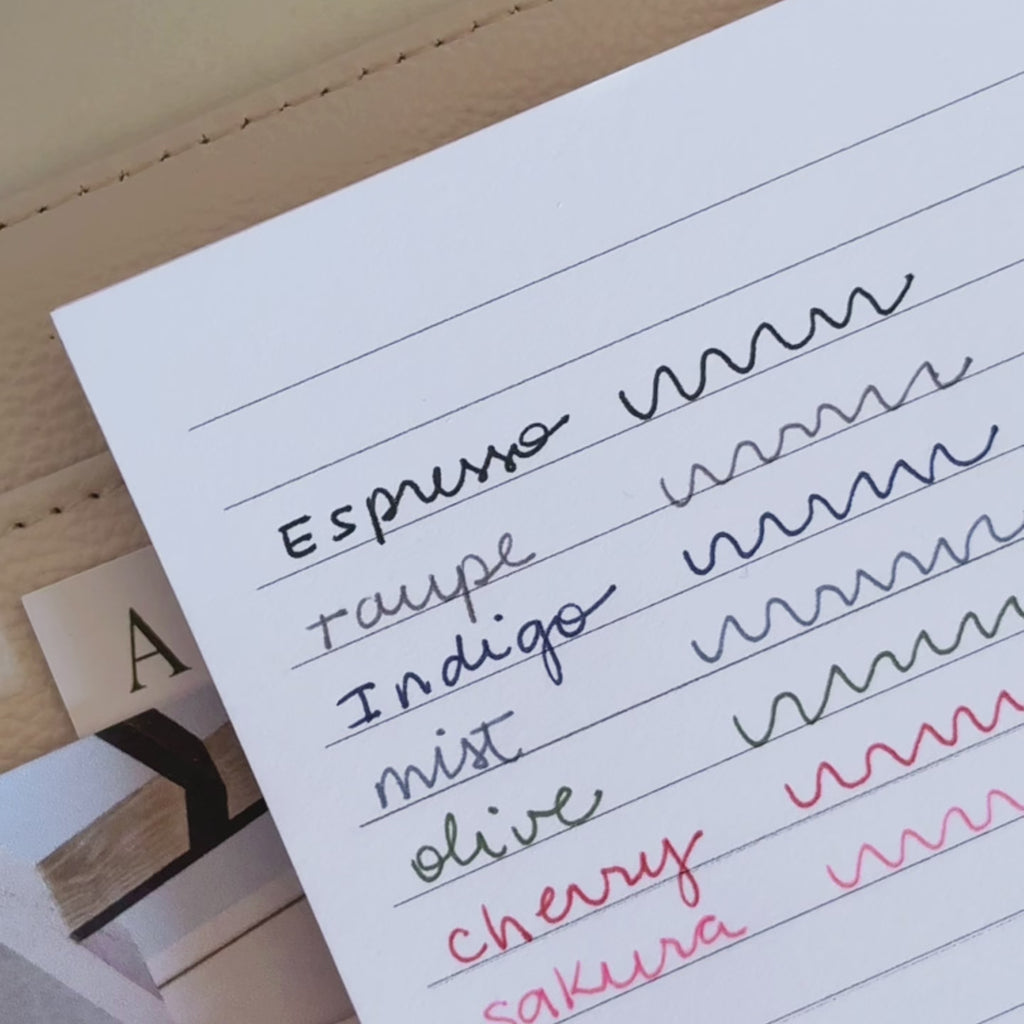 Espresso
taupe
Indigo
mist
olive
cherry
sakura
A